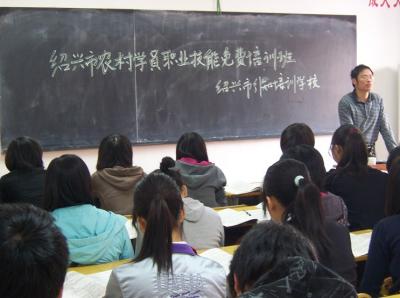 绍兴市农村学员职业技能免费培训班
绍兴市引知培训学校